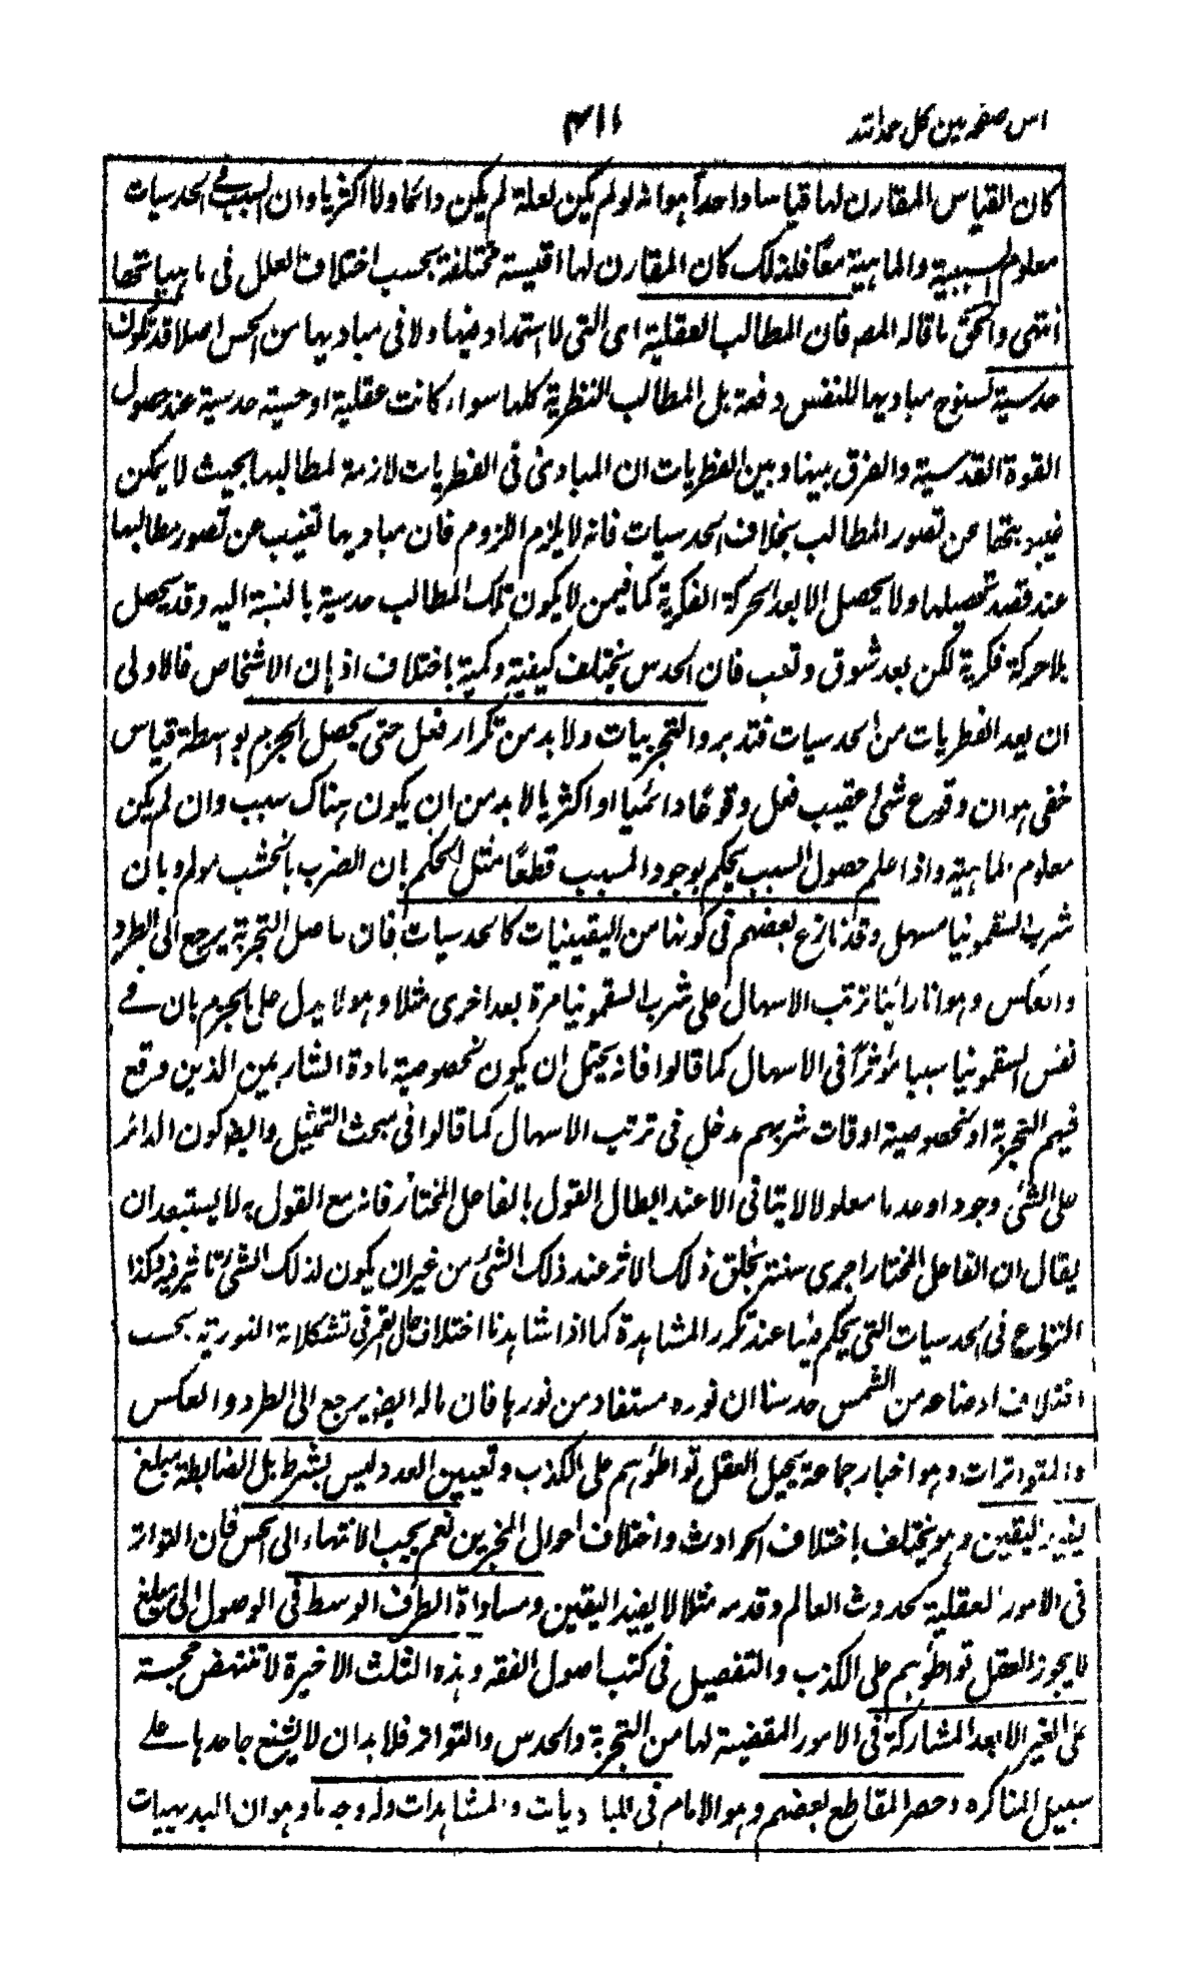 اس صفحہ میں کل حمد اللہ
۳۱۱
كان القياس المقارن لها قياسا واحدا هو انه لو لم يكن لعلة لم يكن دائما ولا اكثريا وان السبب في الحدسيات
معلوم السببية والماهية معا فلذلك كان المقارن لها اقيسة مختلفة بحسب اختلاف العلل في ماهياتها
انتهى والحق ما قاله المصـ فان المطالب العقلية اى التى لا استمداد فيها ولا فى مباديها من الحس اصلا قد تكون
حدسية لسنوح مباديها للنفس دفعة بل المطالب النظرية كلها سواء كانت عقلية او حسية حدسية عند حصول
القوة القدسية والفرق بينها وبين الفطريات ان المبادى فى الفطريات لازمة لمطالبها بحيث لا يمكن
غيبوبتها عن تصور المطالب بخلاف الحدسيات فانه لا يلزم اللزوم فان مباديها تغيب عن تصور مطالبها
عند قصد تحصيلها ولا يحصل الا بعد الحركة الفكرية كما فيمن لا يكون تلك المطالب حدسية بالنسبة اليه وقد يحصل
بلا حركة فكرية لكن بعد شوق وتعب فان الحدس يختلف كيفية وكمية باختلاف اذهان الاشخاص فالاولى
ان يعد الفطريات من الحدسيات فتدبر والتجربيات ولا بد من تكرار فعل حتى يحصل الجزم بواسطة قياس
خفى هو ان وقوع شئ عقيب فعل وقوعا دائميا او اكثريا لا بد من ان يكون هناك سبب وان لم يكن
معلوم الماهية واذا علم حصول السبب يحكم بوجود المسبب قطعًا مثل الحكم بان الضرب بالخشب مولم وبان
شرب السقمونيا مسهل وقد نازع بعضهم فى كونها من اليقينيات كالحدسيات فان حاصل التجربة يرجع الى الطرد
والعكس وهو انا راينا ترتب الاسهال على شرب السقمونيا مرة بعد اخرى مثلا وهو لا يدل على الجزم بان فے
نفس السقمونيا سببا مؤثرا فى الاسهال كما قالوا فانه يحتمل ان يكون لخصوصية مادة الشاربين الذين وقع
فيهم التجربة او لخصوصية اوقات شربهم مدخل فى ترتب الاسهال كما قالوا فى مبحث التمثيل وايضا كون الدائر
على الشئ وجودا وعدما معلولا لا يتاتى الا عند ابطال القول بالفاعل المختار فانه مع القول به لا يستبعد ان
يقال ان الفاعل المختار اجرى سنته بخلق ذلك الاثر عند ذلك الشئ من غير ان يكون لذلك الشئ تاثير فيه وكذا
النزاع فى الحدسيات التى يحكم فيها عند تكرر المشاهدة كما اذا شاهدنا اختلاف حال القمر فى تشكلاته النورية بحسب
اختلاف اوضاعه من الشمس حدسنا ان نوره مستفاد من نورها فان ماله ايضا يرجع الى الطرد والعكس
والمتواترات وهو اخبار جماعة يحيل العقل تواطؤهم على الكذب وتعيين العدد ليس بشرط بل الضابطة مبلغ
يفيد اليقين وهو يختلف باختلاف الحوادث واختلاف احوال المخبرين نعم يجب الانتهاء الى الحس فان التواتر
فى الامور العقلية كحدوث العالم وقدمه مثلا لا يفيد اليقين ومساواة الطرف الوسط فى الوصول الى مبلغ
لا يجوز العقل تواطؤهم على الكذب والتفصيل فى كتب اصول الفقه وهذه الثلث الاخيرة لا تنتهض حجة
على الغير الا بعد المشاركة فى الامور المقضية لها من التجربة والحدس والتواتر فلا بد ان لا يشنع جاحدها علے
سبيل المناكره وحصر المقاطع بعضهم وهو الامام فى المباديات والمشاهدات وله وجه ما وهو ان البديهيات